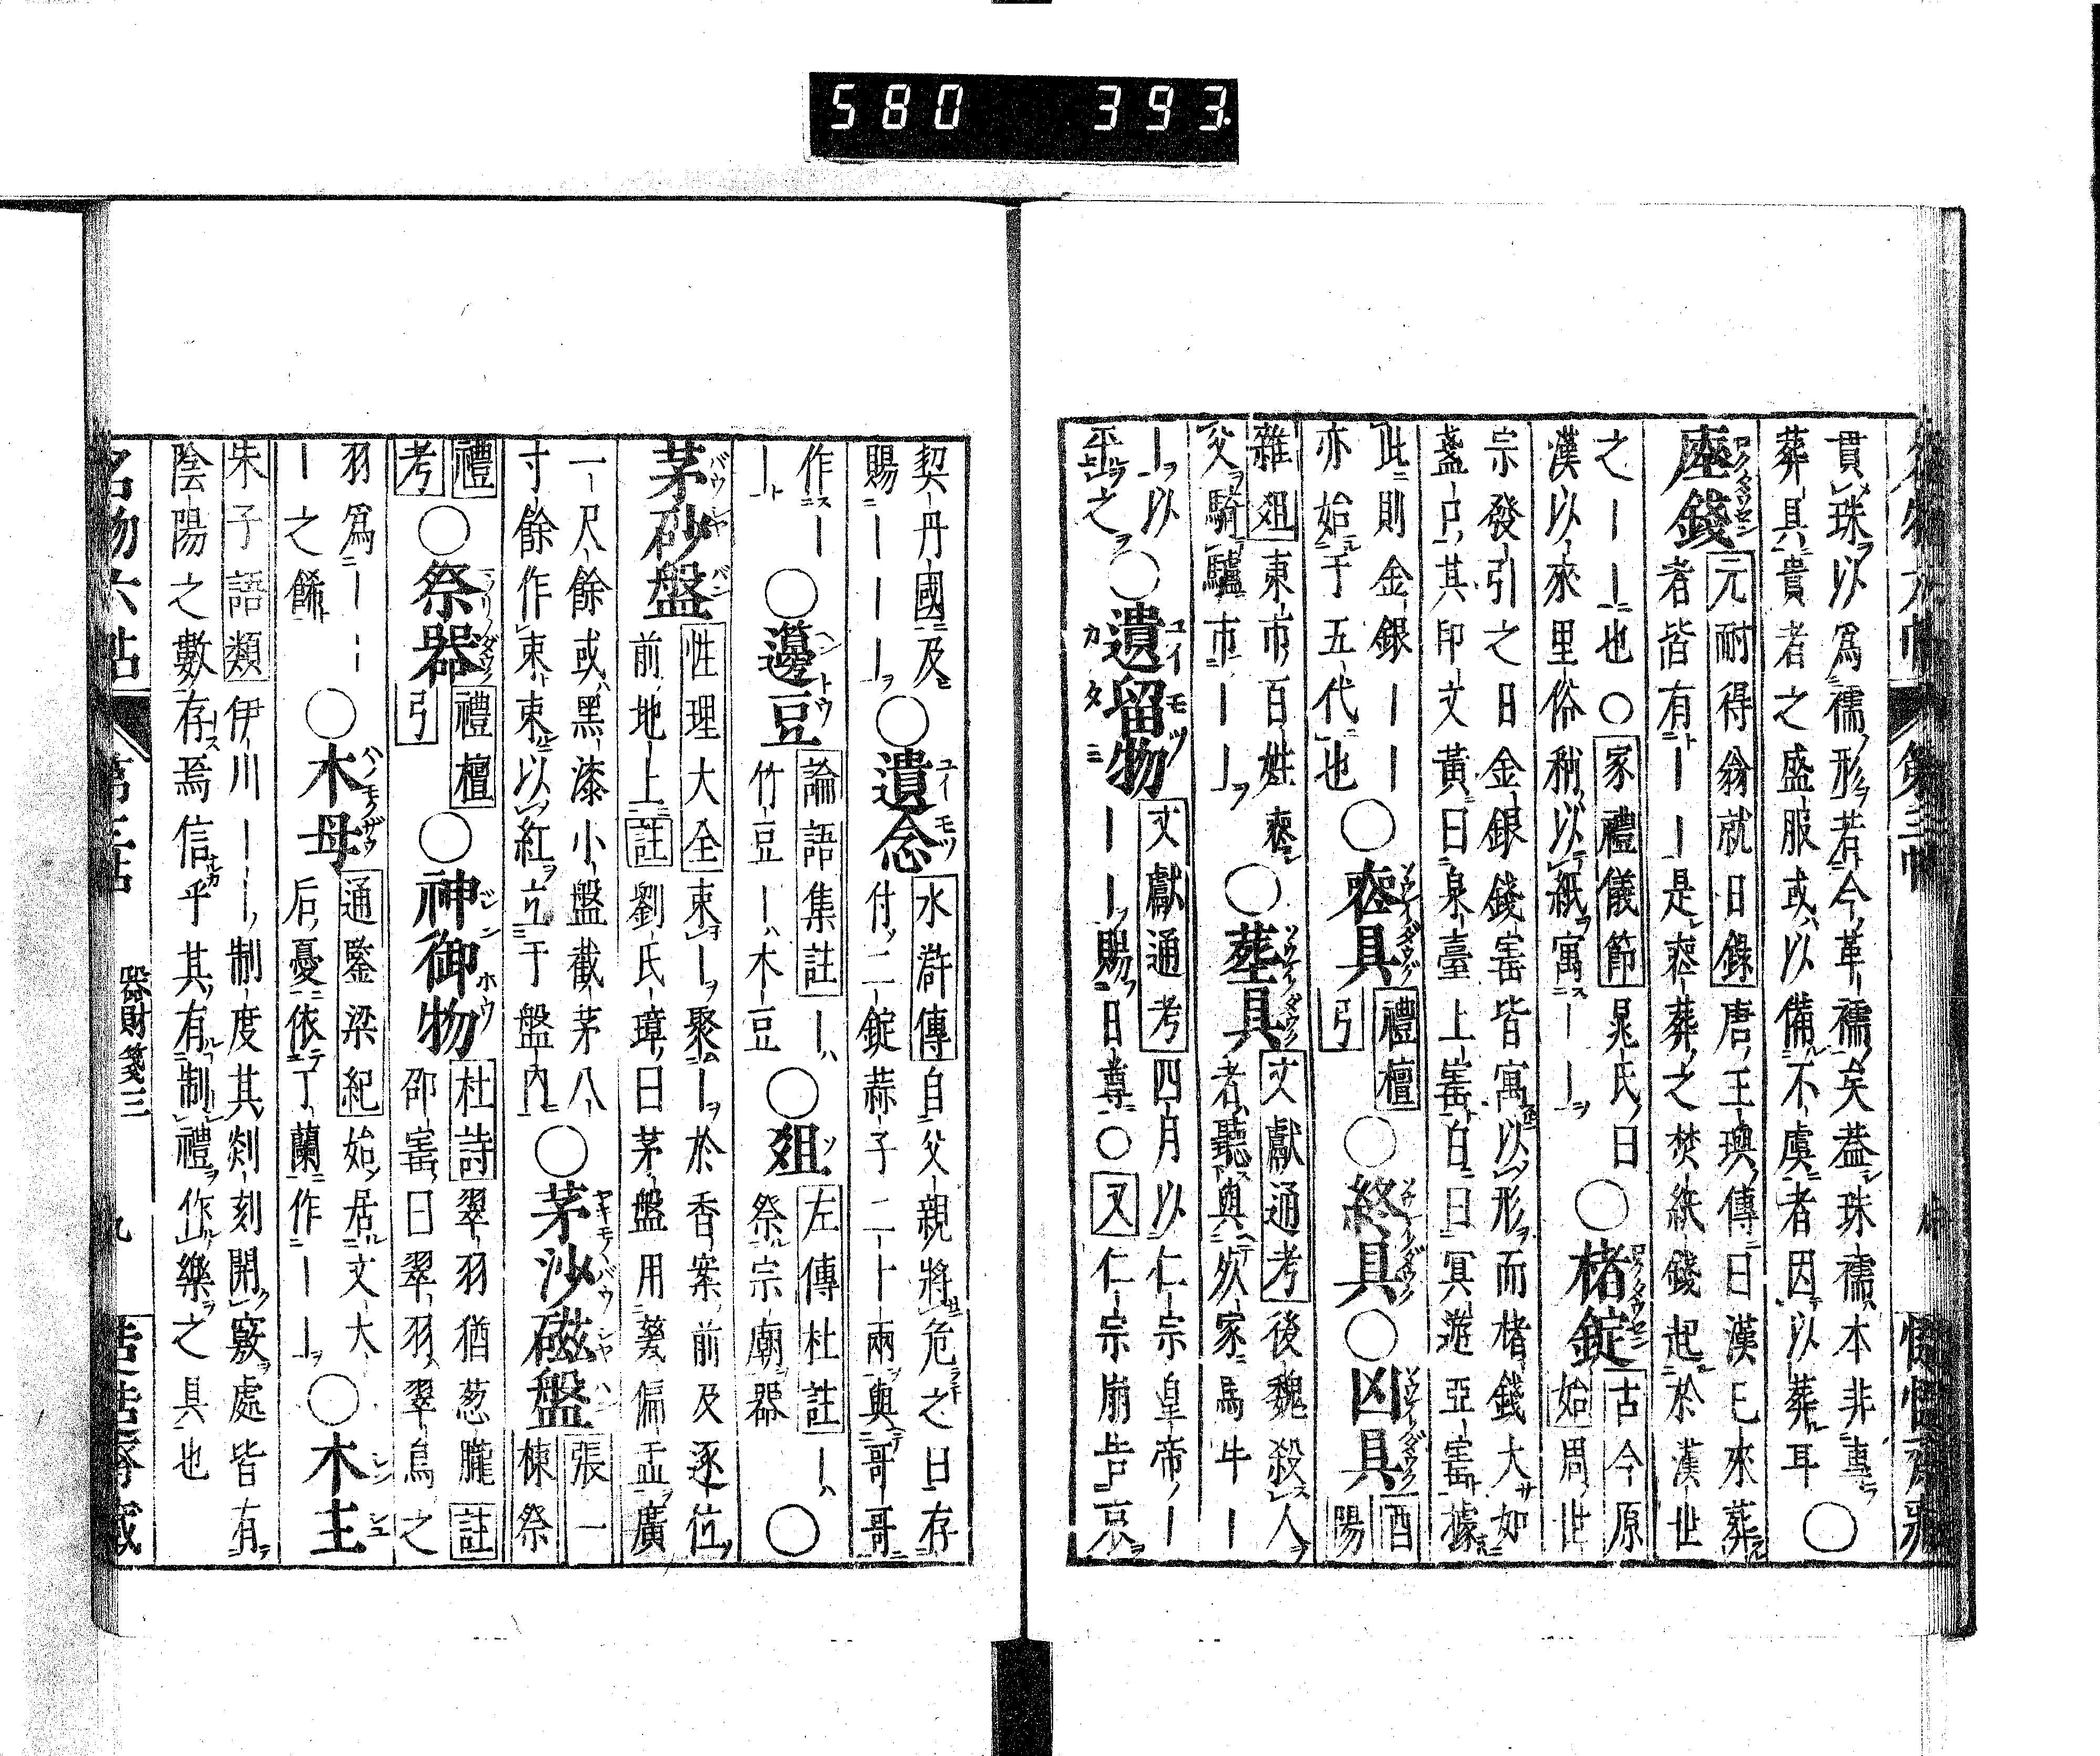 名物六帖 第三帖
貫珠以爲襦形若今革襦矣葢珠襦本非專
葬具貴者之盛服或以備不虞者因以葬耳 ○
座錢 元耐得翁就日錄 唐王璵傳曰漢已來葬
者皆有｜｜是喪葬之焚紙錢起於漢世
之｜｜也○家禮儀節 晁氏曰
漢以來里俗稍以紙寓｜｜
○楮錠 古今原
始 周世
宗發引之日金銀錢寳皆寓以形而楮錢大如
盞口其印文黃曰泉臺上寳白曰冥遊亞寳據
此則金銀｜｜
亦始于五代也
○喪具 禮檀
弓
○終具○凶具 酉
陽
雜爼 東市百姓喪
父騎驢市｜｜
○葬具 文獻通考 後魏殺人
者聽與死家馬牛｜
｜以
平之
○遺留物 文獻通考 四月以仁宗皇帝｜
｜｜｜賜日尊○又 仁宗崩告哀
契丹國及
賜｜｜｜
○遺念 水滸傳 自父親將危之日存
付二錠蒜子二十兩與哥哥
作｜
｜
○籩豆 論語集註 ｜
竹豆｜木豆
○爼 左傳杜註 ｜
祭宗廟器 ○
茅砂盤 性理大全 束｜聚｜於香案前及逐位
前地上 註 劉氏璋曰茅盤用甆偏盂廣
一尺餘或黑漆小盤截茅八
寸餘作束束以紅立于盤內
○茅沙磁盤 張一
棟祭
禮
考
○祭器 禮檀
弓
○神御物 杜詩 翠羽猶葱朧 註
邵寳曰翠羽翠鳥之
羽爲｜｜
｜之餙
○木母 通鑒梁紀 始居文大
后憂依丁蘭作｜｜ ○木主
朱子語類 伊川｜｜制度其剡刻開竅處皆有
陰陽之數存焉信乎其有制禮作樂之具也
名物六帖 第三帖 器財箋三 九
580 393